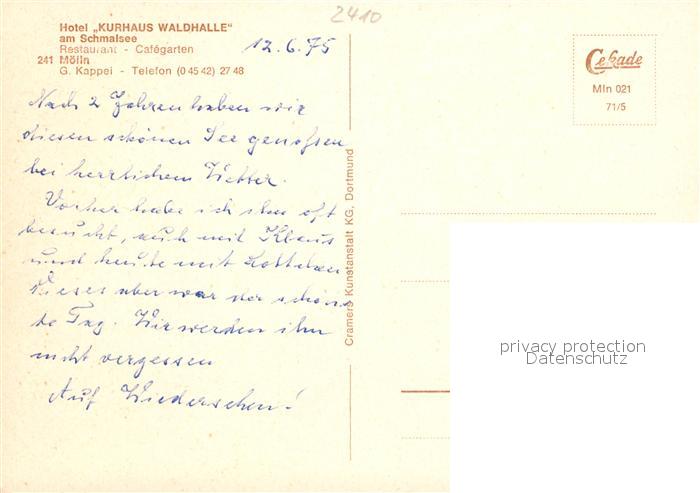 2410
Hotel „KURHAUS WALDHALLE"
am Schmalsee
Restaurant - Cafégarten
241 Mölln
G. Kappei - Telefon (0 45 42) 27 48
12.6.75
Cekade
Mln 021
71/5
Nach 2 Jahren haben wir
diesen schönen See genossen
bei herrlichem Wetter.
Vorher habe ich ihn oft
besucht, auch mit Klaus
und heute mit Lottchen
Dieses aber war der schöns-
te Tag. Wir werden ihn
nicht vergessen
Auf Wiedersehen!
Cramers Kunstanstalt KG, Dortmund
privacy protection
Datenschutz